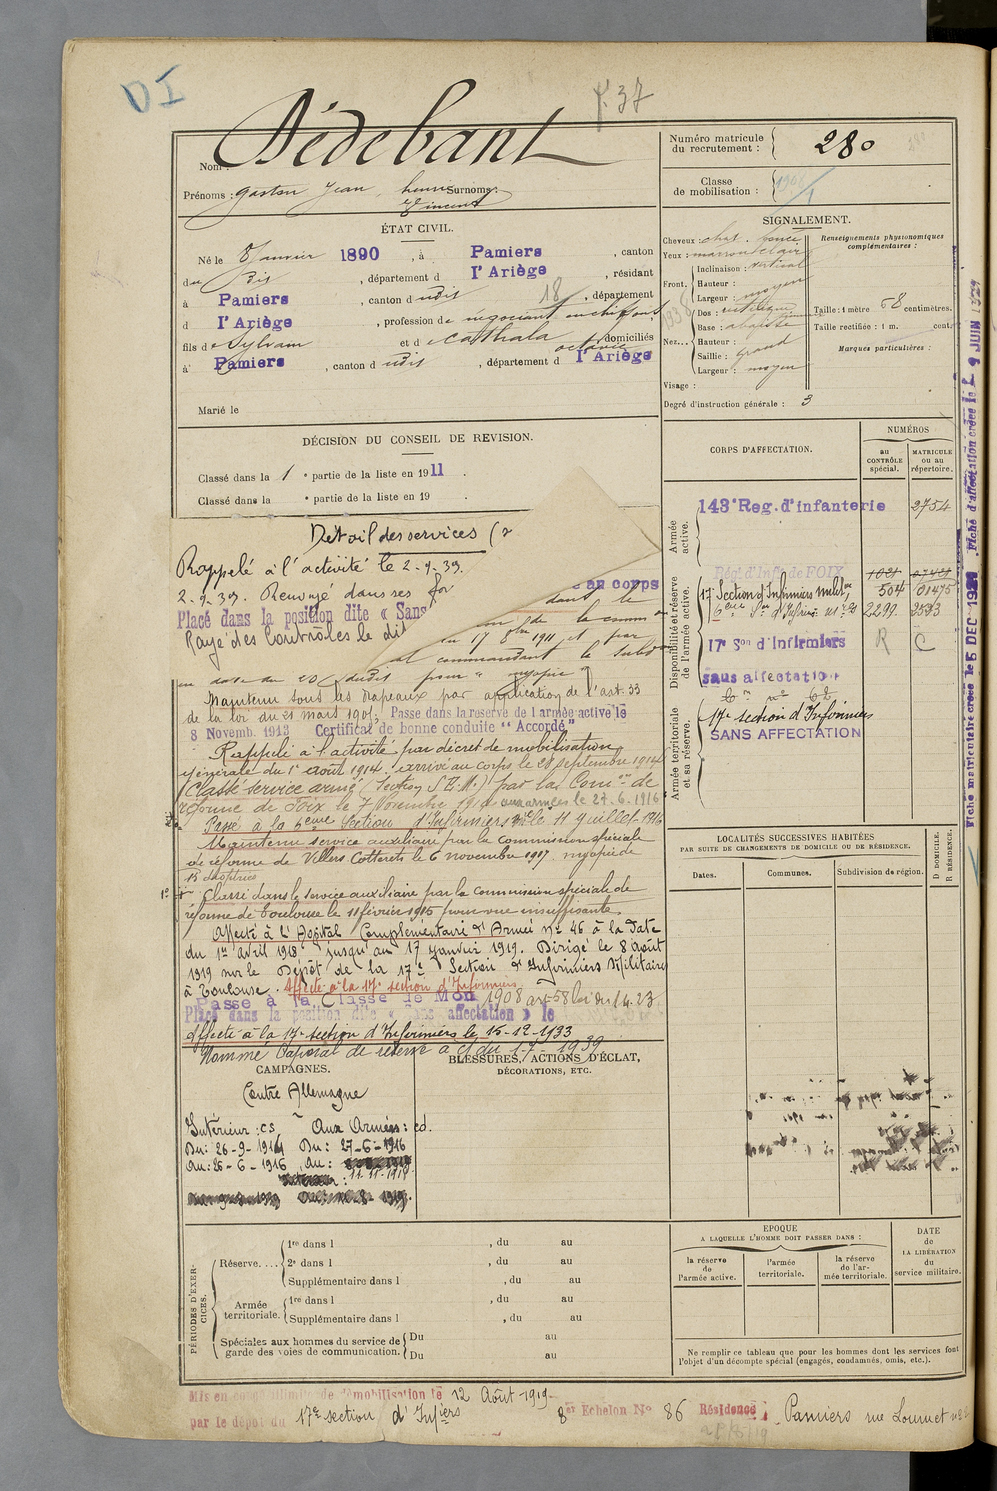 DI
f. 37
Nom : Dédebant
Prénoms : Gaston Jean henri Surnoms :
Vincent
Numéro matricule
du recrutement : 280
Classe
de mobilisation : 1908/1
ÉTAT CIVIL.
Né le 8 Janvier 1890, à Pamiers, canton
du dit, département d l'Ariège, résidant
à Pamiers, canton dudit, département
d l'Ariège, profession de négociant en chiffons
fils de Sylvain et de Cathala octavie domiciliés
à Pamiers, canton dudit, département d l'Ariège
Marié le
SIGNALEMENT.
Cheveux : chat. foncé
Yeux : marron clair
Front. Inclinaison : vertical
Hauteur :
Largeur : moyen
Nez... Dos : rectiligne
Base : abaissée
Hauteur :
Saillie : grand
Largeur : moyen
Visage :
Degré d'instruction générale : 3
Renseignements physionomiques
complémentaires :
Taille : 1 mètre 58 centimètres.
Taille rectifiée : 1 m. cent.
Marques particulières :
DÉCISION DU CONSEIL DE REVISION.
Classé dans la 1e partie de la liste en 1911.
Classé dans la e partie de la liste en 19 .
CORPS D'AFFECTATION.
NUMÉROS
au
CONTRÔLE
spécial.
MATRICULE
ou au
répertoire.
Armée
active.
143e Reg. d'infanterie 2754
Disponibilité et réserve
de l'armée active.
Régt d'Infie de FOIX 1021 07421
17e Section d'Infirmiers milit. 504 01475
6eme Son d'Infirm. 2299 2593
17e Son d'Infirmiers R C
sans affectation
Armée territoriale
et sa réserve.
17e section d'Infirmiers
SANS AFFECTATION
Détail des services
Rappelé à l'activité le 2-9-39.
2-9-39. Renvoyé dans ses fo
Placé dans la position dite « Sans
Rayé des Contrôles le dit
au corps
dans le
en 17 8bre 1911 et par
al commandant le Subd
en date du 20 dudit pour " myopie "
Maintenu sous les drapeaux par application de l'art. 33
de la loi du 21 mars 1905. Passe dans la reserve de l'armée active le
8 Novemb. 1913 Certificat de bonne conduite "Accordé"
Rappelé à l'activité par décret de mobilisation
générale du 1er août 1914, arrivé au corps le 28 septembre 1914
Classé service armé (Section S.E.M.) par la Comon de
réforme de Foix le 7 Novembre 191 aux armées le 27.6.1916
Passé à la 6eme Section d'Infirmiers Mre le 11 juillet 1916
Maintenu service auxiliaire par la Commission spéciale
de réforme de Villers Cotterets le 6 novembre 1917. myopie de
15 dioptries
Classé dans le service auxiliaire par la Commission spéciale de
réforme de Toulouse le 11 février 1915 pour vue insuffisante.
Affecté à l'Hôpital Complémentaire d'Armée No 46 à la date
du 1er avril 1918 jusqu'au 17 janvier 1919. Dirigé le 8 août
1919 sur le Dépôt de la 17e Section d'Infirmiers Militaires
à Toulouse. Affecté à la 17e section d'Infirmiers
Passe à la Classe de Mon 1908 art 58 loi du 1.4.23
Placé dans la position dite « Sans affectation » le
Affecté à la 17e section d'Infirmiers le 15-12-1933
Nommé Caporal de réserve à C du 1-7-1939
CAMPAGNES.
Contre Allemagne
Intérieur : cs Aux Armées : cd.
Du : 26-9-1914 Du : 27-6-1916
Au : 26-6-1916 Au :
11-11-1918
BLESSURES, ACTIONS D'ÉCLAT,
DÉCORATIONS, ETC.
LOCALITÉS SUCCESSIVES HABITÉES
PAR SUITE DE CHANGEMENTS DE DOMICILE OU DE RÉSIDENCE.
Dates.
Communes.
Subdivision de région.
D DOMICILE.
R RÉSIDENCE.
PÉRIODES D'EXERCICES.
Réserve.... 1re dans l , du au
2e dans l , du au
Supplémentaire dans l , du au
Armée
territoriale. 1re dans l , du au
Supplémentaire dans l , du au
Spéciales aux hommes du service de
garde des voies de communication. Du au
Du au
EPOQUE
A LAQUELLE L'HOMME DOIT PASSER DANS :
la réserve
de
l'armée active.
l'armée
territoriale.
la réserve
de l'ar-
mée territoriale.
DATE
de
LA LIBÉRATION
du
service militaire.
Ne remplir ce tableau que pour les hommes dont les services font
l'objet d'un décompte spécial (engagés, condamnés, omis, etc.).
Mis en congé illimité de démobilisation le 12 Août 1919
par le dépôt du 17e section d'Infiers 8er Echelon No 86 Résidence : Pamiers rue Loumet
Fiche matriculaire créée le 5 DEC 192 Fiche d'affectation créée le 9 JUIN 1929